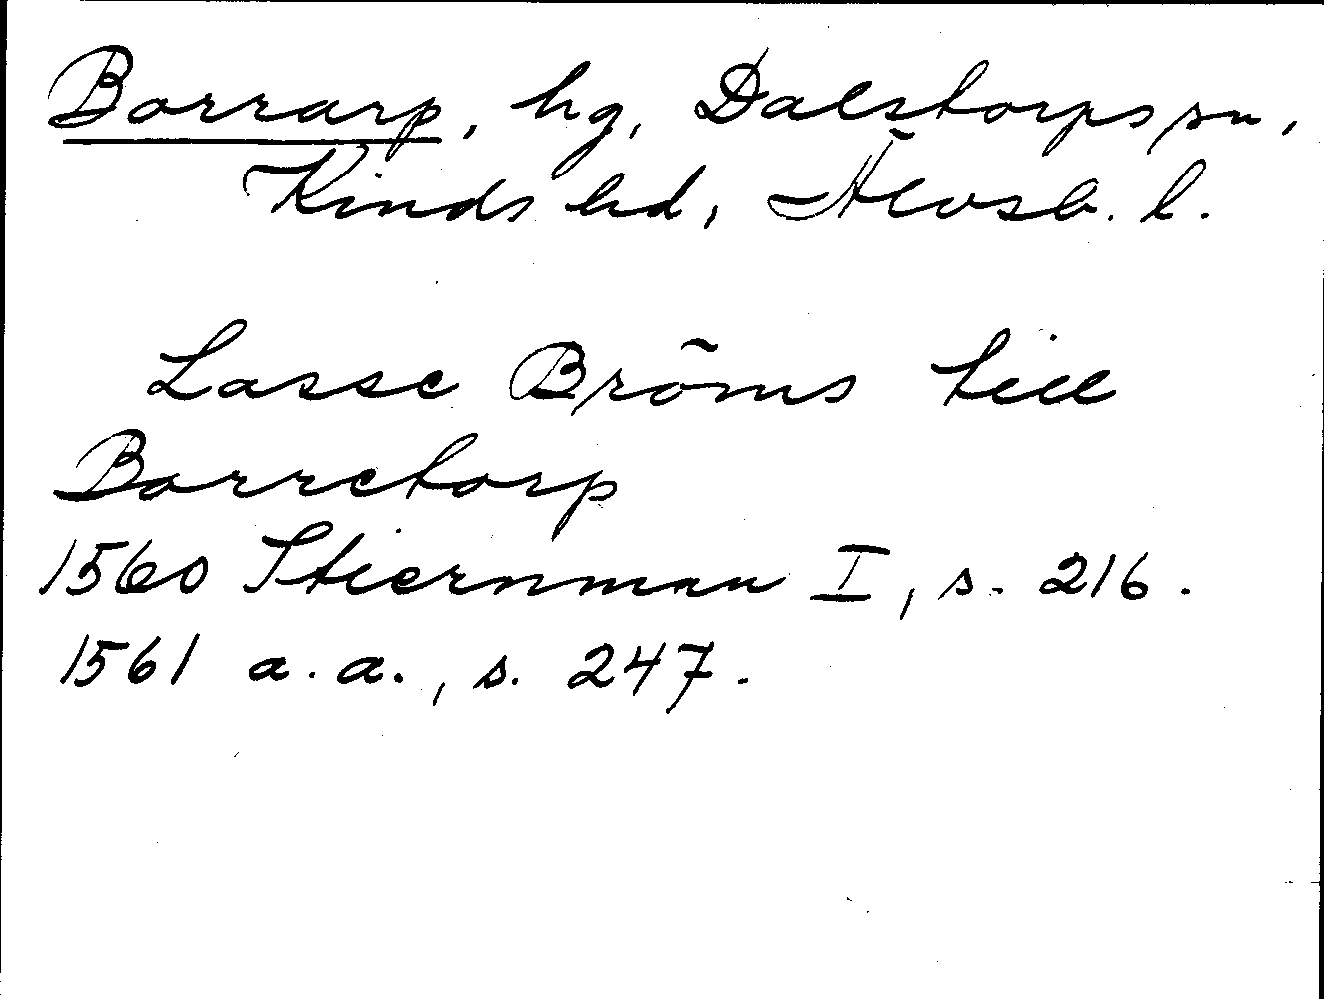 Borrarp, hg, Dalstorps sn,
Kinds hd, Älvsb. l.
Lasse Bröms till
Borretorp
1560 Stiernman I, s. 216.
1561 a.a., s. 247.